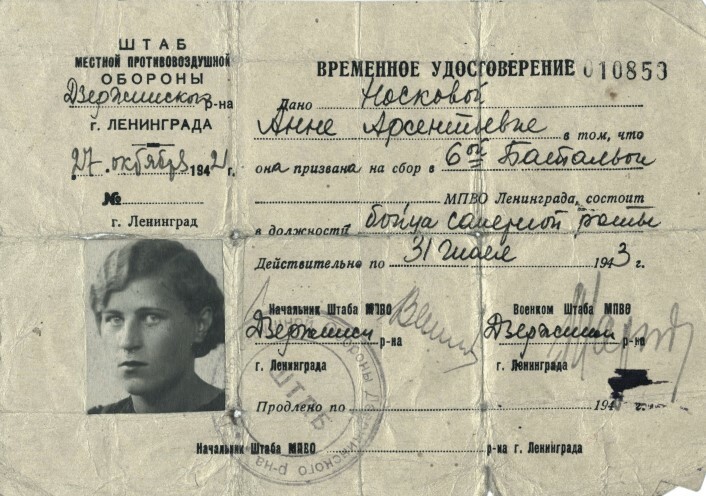 ШТАБ
МЕСТНОЙ ПРОТИВОВОЗДУШНОЙ
ОБОРОНЫ
Дзержинског р-на
г. ЛЕНИНГРАДА
27. октября 1942 г.
№
г. Ленинград
ВРЕМЕННОЕ УДОСТОВЕРЕНИЕ 010853
Дано Носковой
Анне Арсентьевне в том, что
она призвана на сбор в 6ой Батальон
МПВО Ленинграда, состоит
в должности бойца саперной роты
Действительно по 31 июля 1943 г.
Начальник Штаба МПВО
Дзержинск р-на
г. Ленинграда
Военком Штаба МПВО
Дзержинск р-на
г. Ленинграда
Продлено по 194 г.
Начальник Штаба МПВО р-на г. Ленинграда
ШТАБ